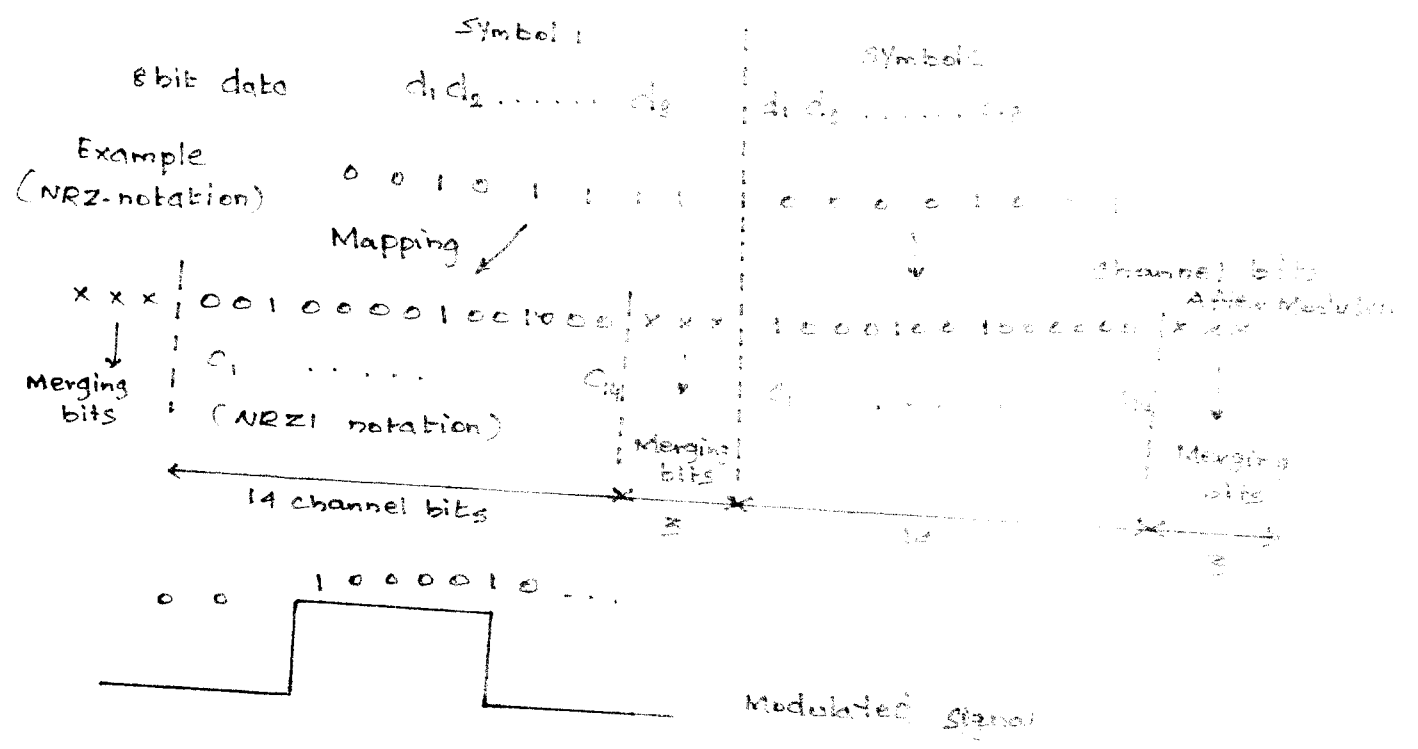 Symbol 1
Symbol 2
8 bit data d₁ d₂ ...... d₈ d₁ d₂ ......
Example
(NRZ-notation) 0 0 1 0 1 1 1 1
Mapping
Channel bits
After
x x x 0 0 1 0 0 0 0 1 0 0 1 0 0 0 x x x 1 0 0 0 1 0 0 1 0 0 0 0 0 0 x x x
C₁ ..... C₁₄ C₁
Merging bits
(NRZI notation)
Merging bits
Merging bits
14 channel bits 3 14 3
0 0 1 0 0 0 0 1 0 ...
Modulated signal